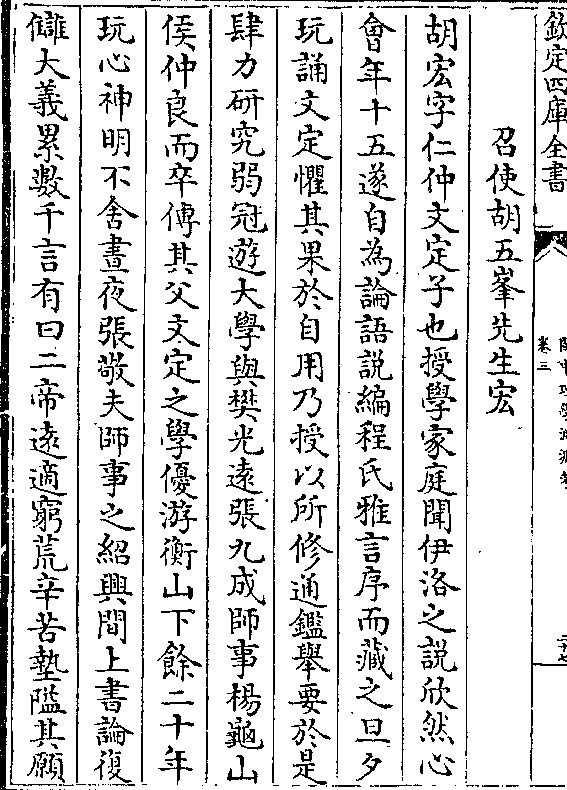 欽定四庫全書
卷三
召使胡五峯先生宏
胡宏字仁仲文定子也授學家庭聞伊洛之説欣然心
會年十五遂自為論語説編程氏雅言序而藏之旦夕
玩誦文定懼其果於自用乃授以所修通鑑舉要於是
肆力研究弱冠遊大學與樊光遠張九成師事楊龜山
侯仲良而卒傳其父文定之學優游衡山下餘二十年
玩心神明不舍晝夜張敬夫師事之紹興間上書論復
讎大義累數千言有曰二帝遠適窮荒辛苦墊隘其願